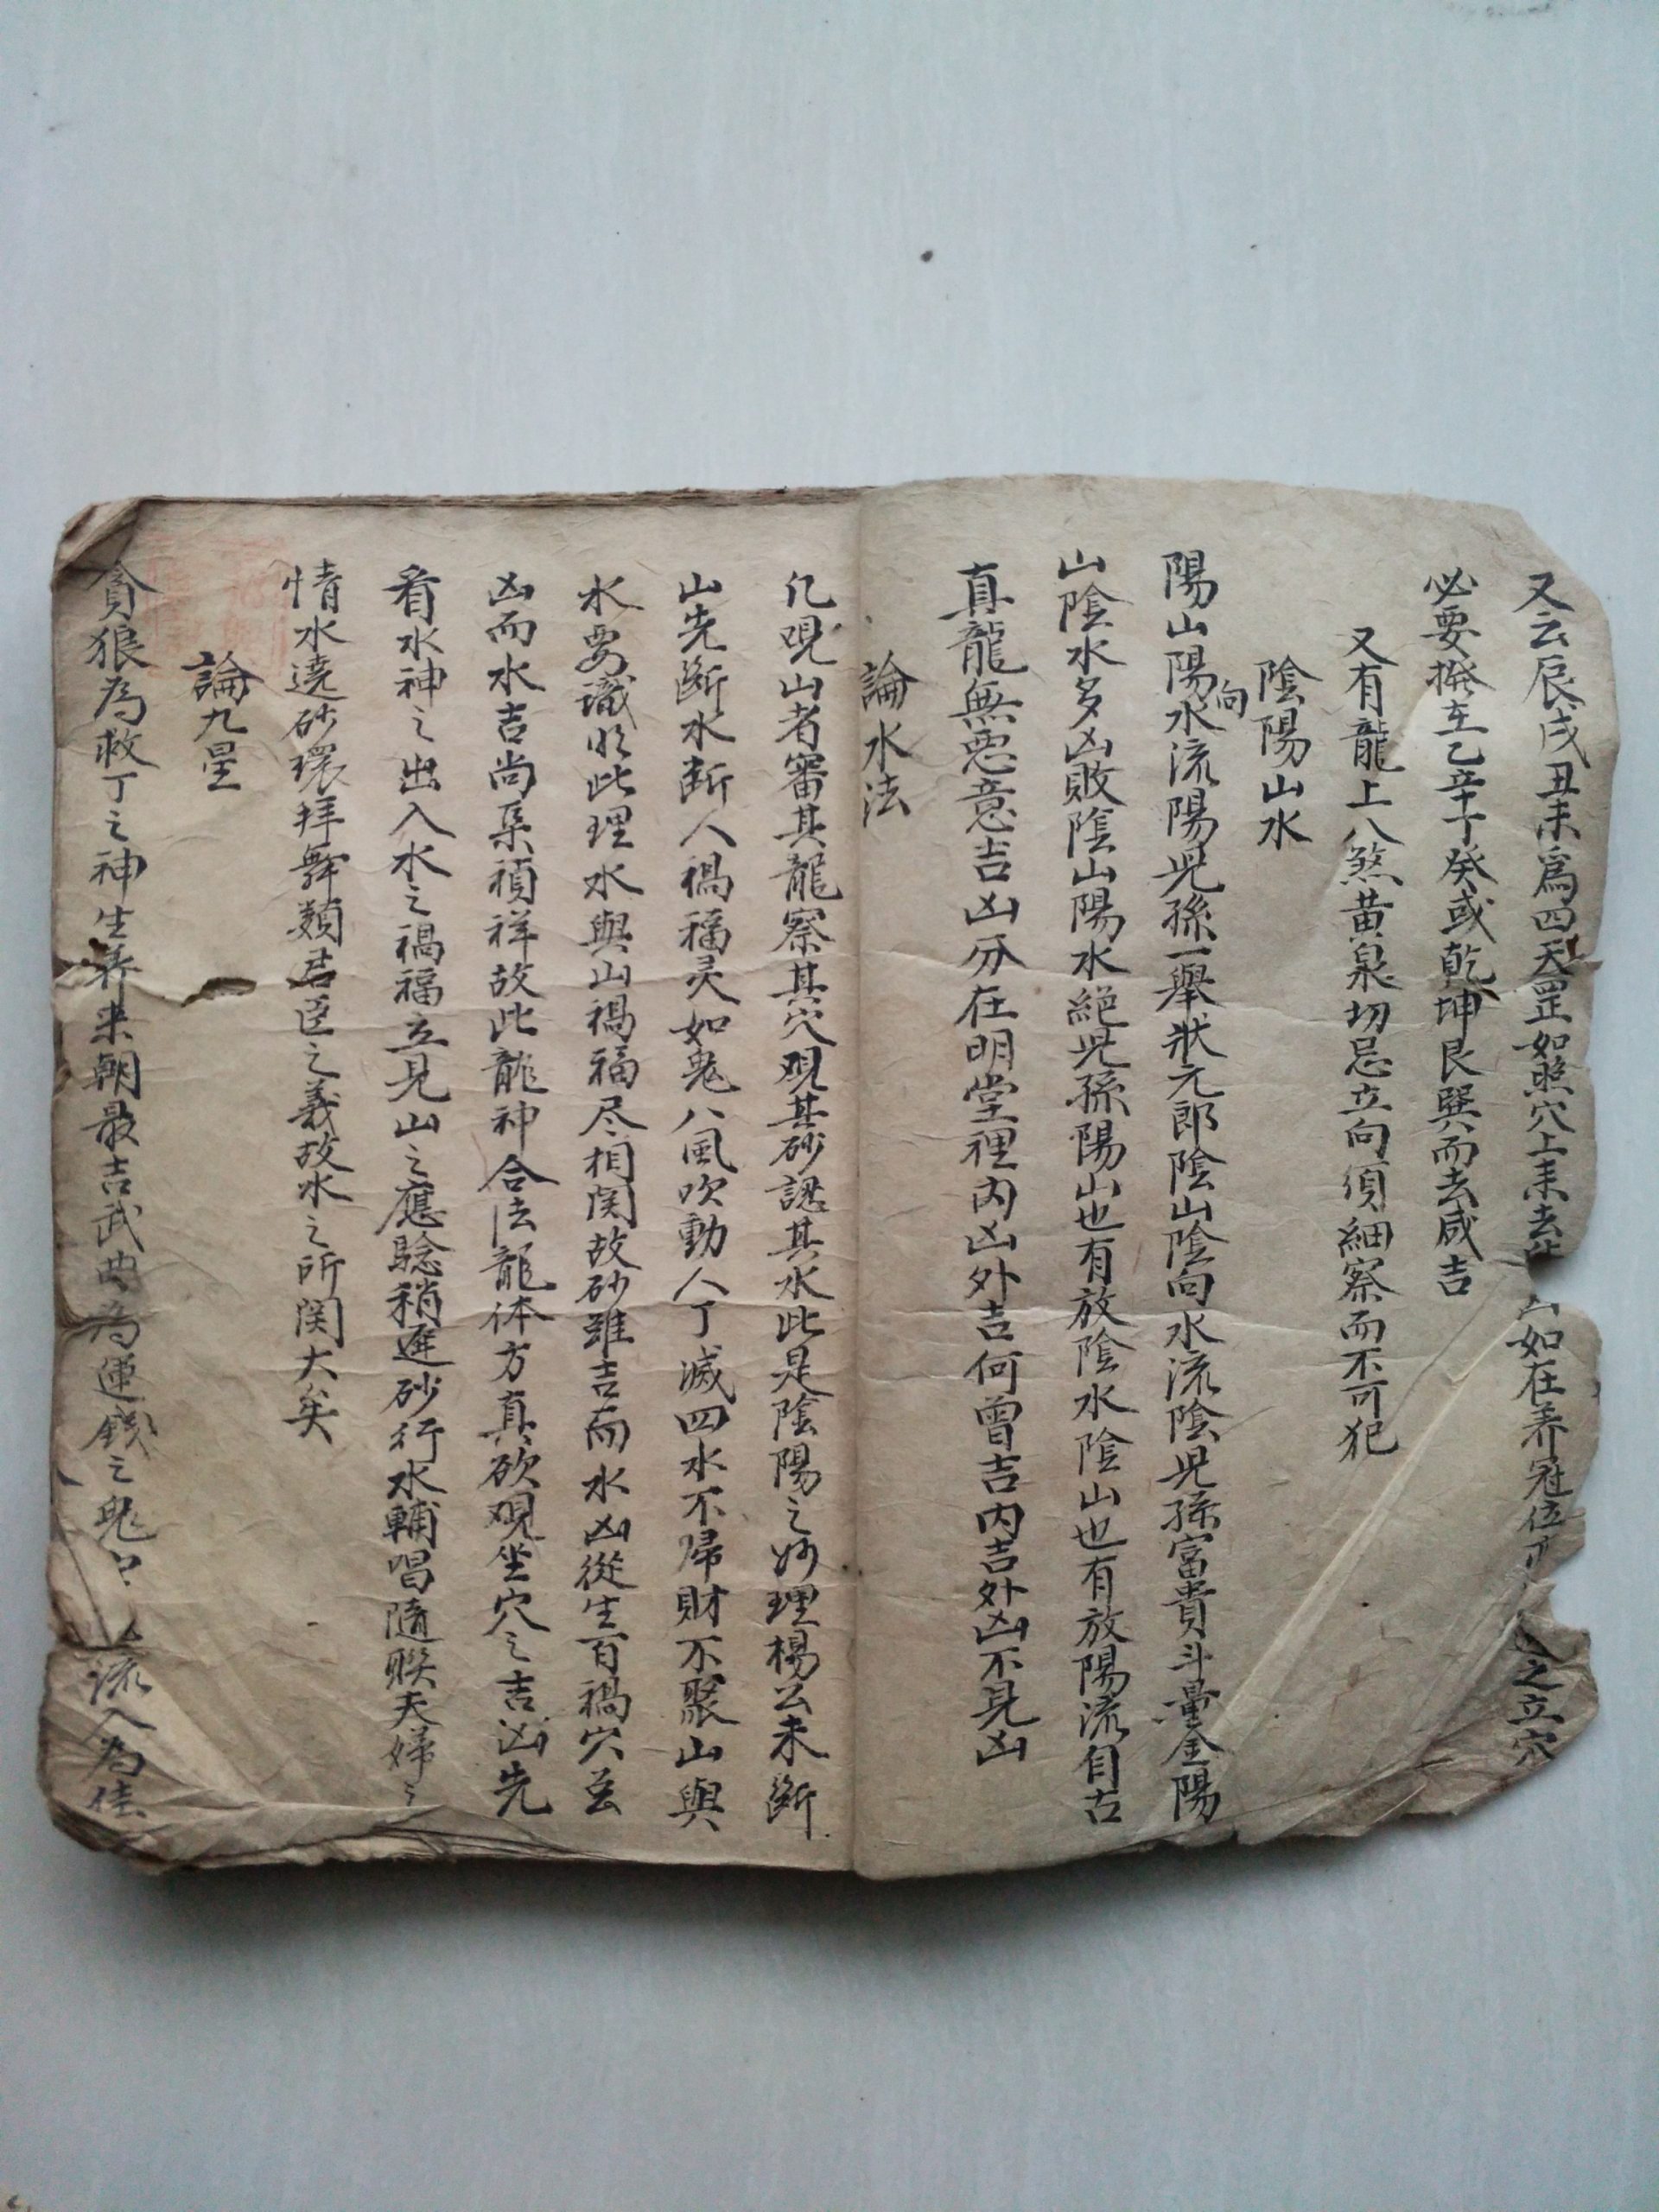 又云辰戌丑未為四天罡如照穴上来去 如在养冠位 之立穴
必要撥在乙辛丁癸或乾坤艮巽而去咸吉
又有龍上八煞黄泉切忌立向須細察而不可犯
陰陽山水
陽山陽向水流陽兒孫一舉狀元郎陰山陰向水流陰兒孫富貴斗量金陽
山陰水多凶敗陰山陽水絕兒孫陽山也有放陰水陰山也有放陽流自古
真龍無惡意吉凶分在明堂裡内凶外吉何曾吉内吉外凶不見凶
論水法
凡觀山者審其龍察其穴觀其砂認其水此是陰陽之妙理楊公未断
山先断水断人禍福灵如鬼八風吹動人丁滅四水不歸財不聚山與
水要識此理水與山禍福尽相関故砂雖吉而水凶從生百禍穴虽
凶而水吉尚集禎祥故此龍神合法龍体方真欲觀坐穴之吉凶先
看水神之出入水之禍福立見山之應騐稍遲砂行水輔唱隨賬夫婦之
情水遶砂環拜舞類君臣之義故水之所関大矣
論九星
貪狼為救丁之神生养来朝最吉武曲為運錢之鬼 流入為佳